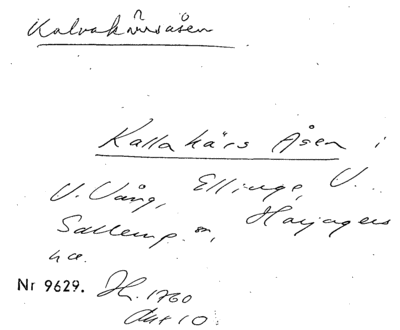 Kalvakärsåsen
Kalla kärs Åsen i
V. Vång, Ellinge, V.
Sallerup sn, Harjagers
hd.
Nr 9629. Jb. 1760
Akt 10.